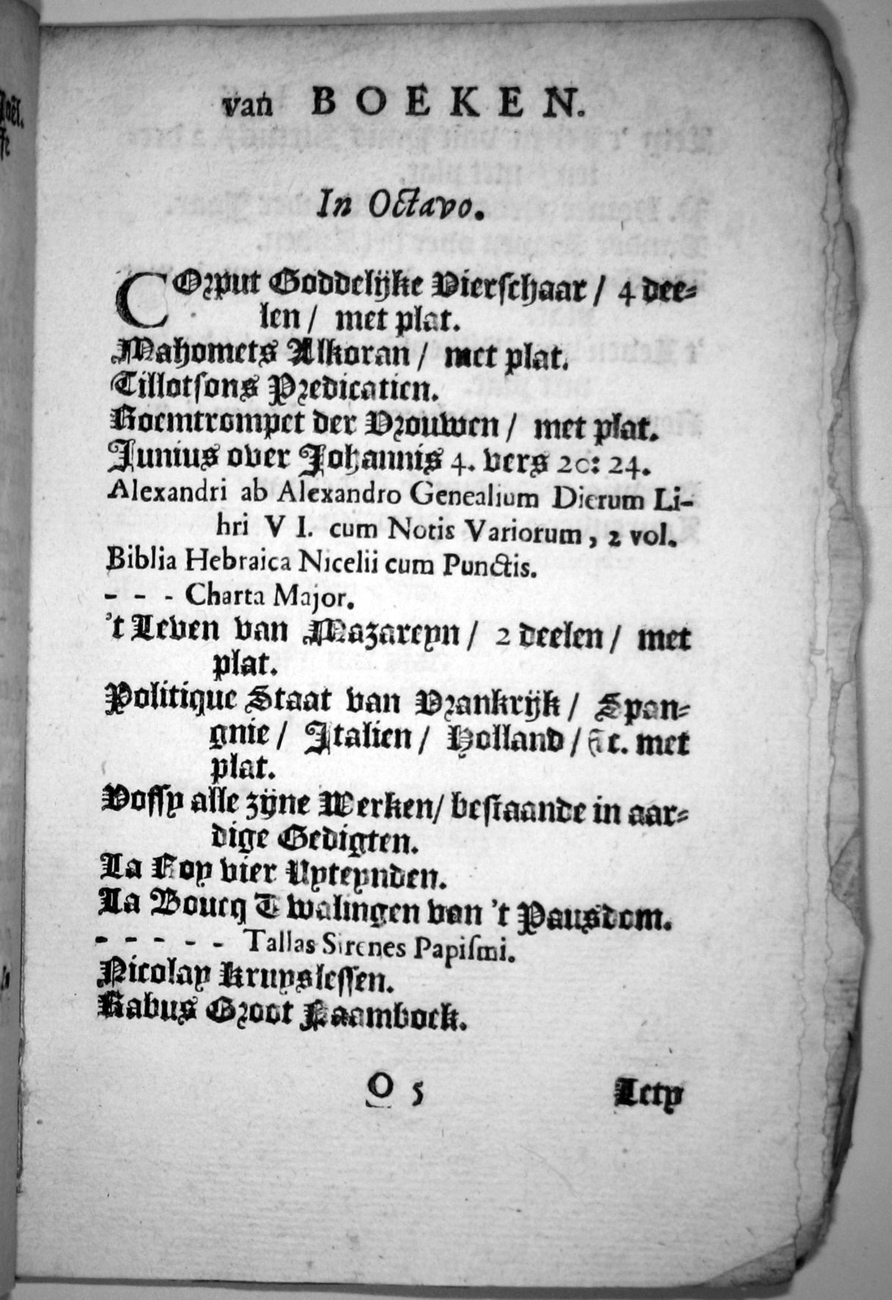 van BOEKEN.
In Octavo.
COrput Goddelijke Vierschaar / 4 dee-
len / met plat.
Mahomets Alkoran / met plat.
Tillotsons Predicatien.
Roemtrompet der Vrouwen / met plat.
Junius over Johannis 4. vers 20: 24.
Alexandri ab Alexandro Genealium Dierum Li-
hri VI. cum Notis Variorum, 2 vol.
Biblia Hebraica Nicelii cum Punctis.
- - - Charta Major.
't Leven van Mazareyn / 2 deelen / met
plat.
Politique Staat van Vrankrijk / Span-
gnie / Italien / Holland / &c. met
plat.
Vossy alle zijne Werken / bestaande in aar-
dige Gedigten.
La Foy vier Uyteynden.
La Boucq Dwalingen van 't Pausdom.
- - - - - Tallas Sirenes Papismi.
Nicolay Kruyslessen.
Rabus Groot Naamboek.
O 5
Lety